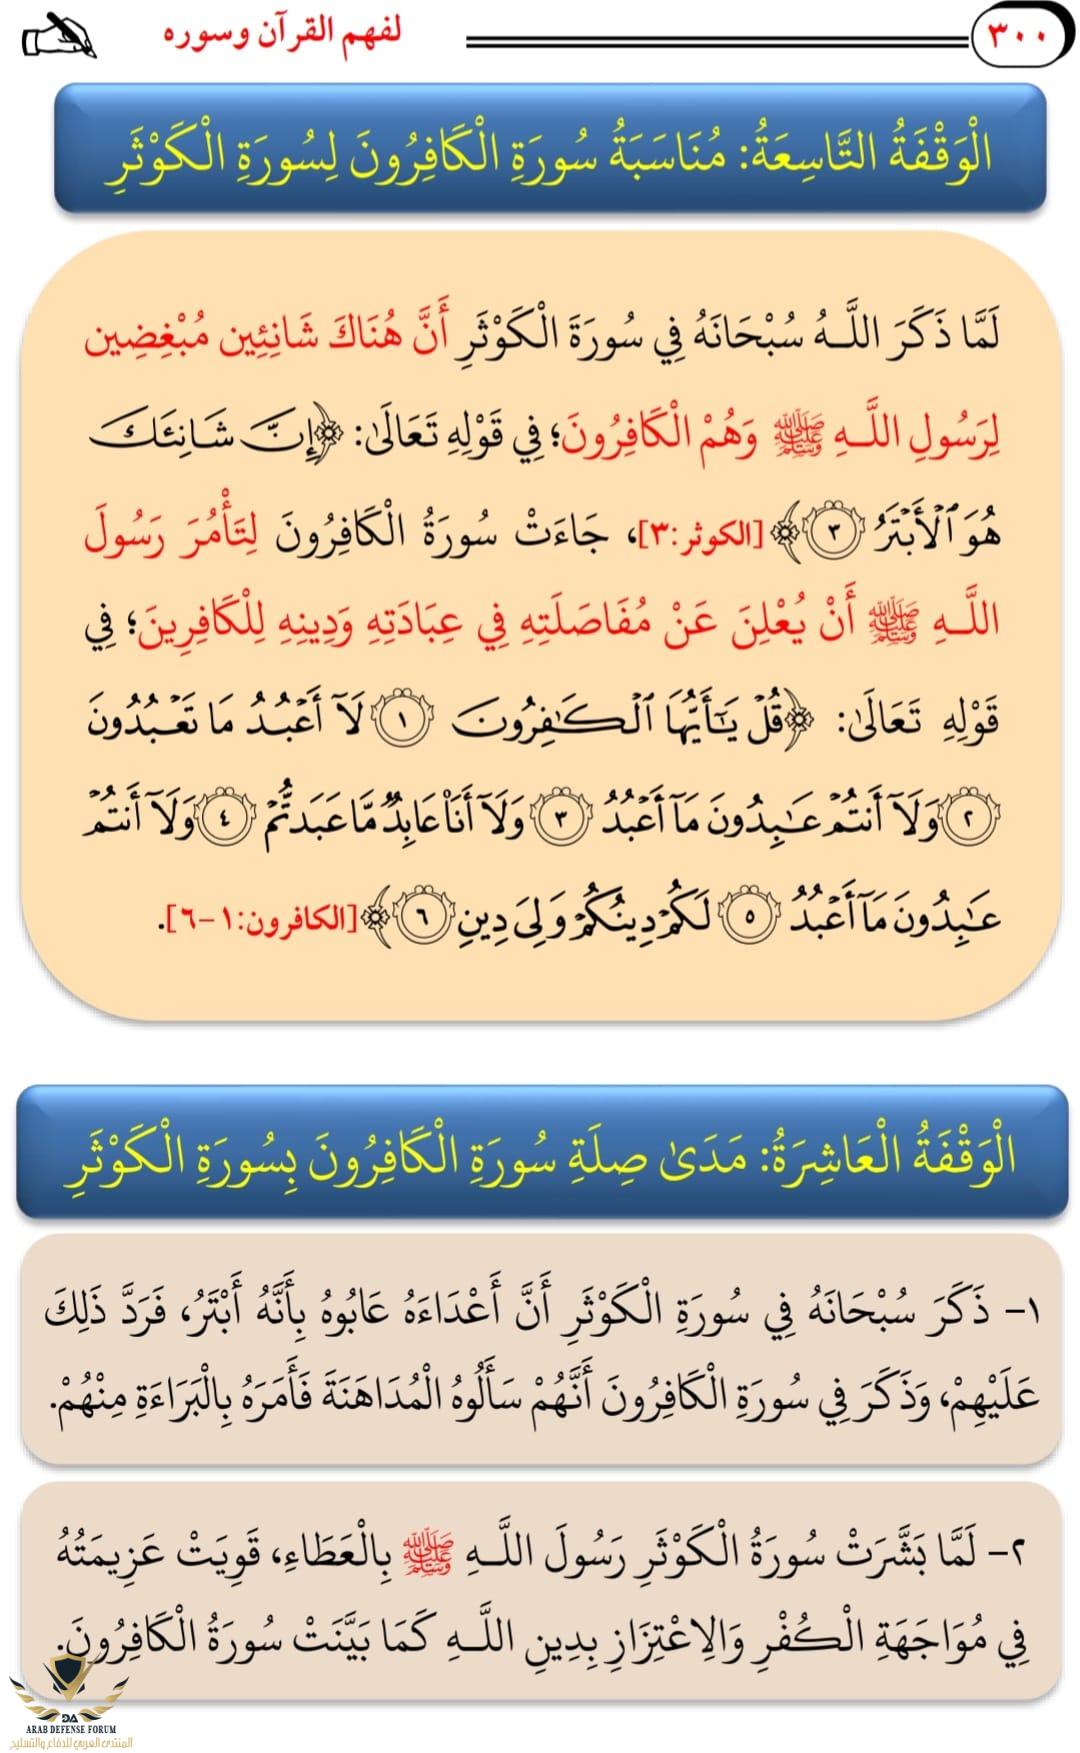 ٣٠٠
لفهم القرآن وسوره
الْوَقْفَةُ التَّاسِعَةُ: مُنَاسَبَةُ سُورَةِ الْكَافِرُونَ لِسُورَةِ الْكَوْثَرِ
لَمَّا ذَكَرَ اللَّـهُ سُبْحَانَهُ فِي سُورَةَ الْكَوْثَرِ أَنَّ هُنَاكَ شَانِئِين مُبْغِضِين
لِرَسُولِ اللَّـهِ ﷺ وَهُمْ الْكَافِرُونَ؛ فِي قَوْلِهِ تَعَالَىٰ: ﴿إِنَّ شَانِئَكَ
هُوَ ٱلْأَبْتَرُ ٣﴾ [الكوثر:٣]، جَاءَتْ سُورَةُ الْكَافِرُونَ لِتَأْمُرَ رَسُولَ
اللَّـهِ ﷺ أَنْ يُعْلِنَ عَنْ مُفَاصَلَتِهِ فِي عِبَادَتِهِ وَدِينِهِ لِلْكَافِرِينَ؛ فِي
قَوْلِهِ تَعَالَىٰ: ﴿قُلْ يَـٰٓأَيُّهَا ٱلْكَـٰفِرُونَ ١ لَآ أَعْبُدُ مَا تَعْبُدُونَ
٢ وَلَآ أَنتُمْ عَـٰبِدُونَ مَآ أَعْبُدُ ٣ وَلَآ أَنَا۠ عَابِدٌ مَّا عَبَدتُّمْ ٤ وَلَآ أَنتُمْ
عَـٰبِدُونَ مَآ أَعْبُدُ ٥ لَكُمْ دِينُكُمْ وَلِىَ دِينِ ٦﴾ [الكافرون:١-٦].
الْوَقْفَةُ الْعَاشِرَةُ: مَدَىٰ صِلَةِ سُورَةِ الْكَافِرُونَ بِسُورَةِ الْكَوْثَرِ
١- ذَكَرَ سُبْحَانَهُ فِي سُورَةِ الْكَوْثَرِ أَنَّ أَعْدَاءَهُ عَابُوهُ بِأَنَّهُ أَبْتَرُ، فَرَدَّ ذَلِكَ
عَلَيْهِمْ، وَذَكَرَ فِي سُورَةِ الْكَافِرُونَ أَنَّهُمْ سَأَلُوهُ الْمُدَاهَنَةَ فَأَمَرَهُ بِالْبَرَاءَةِ مِنْهُمْ.
٢- لَمَّا بَشَّرَتْ سُورَةُ الْكَوْثَرِ رَسُولَ اللَّـهِ ﷺ بِالْعَطَاءِ، قَوِيَتْ عَزِيمَتُهُ
فِي مُوَاجَهَةِ الْكُفْرِ وَالِاعْتِزَازِ بِدِينِ اللَّـهِ كَمَا بَيَّنَتْ سُورَةُ الْكَافِرُونَ.
DA
ARAB DEFENSE FORUM
المنتدى العربي للدفاع والتسليح